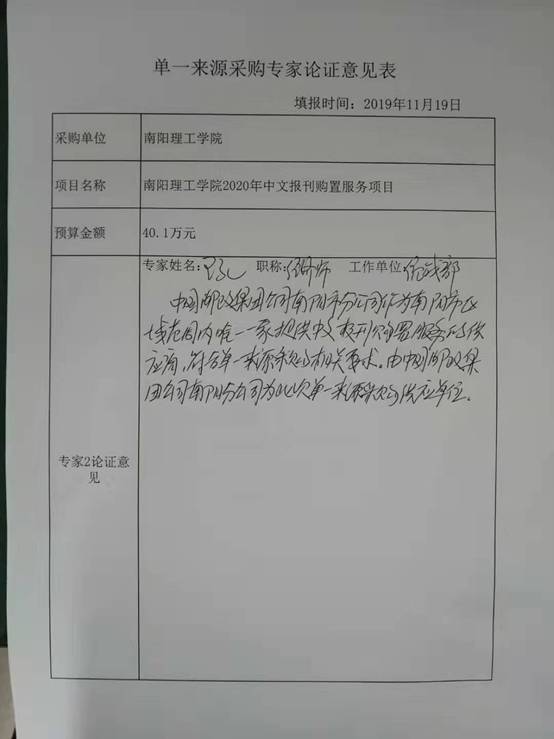 单一来源采购专家论证意见表
填报时间：2019年11月19日
采购单位
南阳理工学院
项目名称
南阳理工学院2020年中文报刊购置服务项目
预算金额
40.1万元
专家2论证意
见
专家姓名： 职称： 工作单位：
中国邮政集团公司南阳市分公司作为南阳市区
域范围内唯一一家提供中文报刊购置服务的供
应商，符合单一来源采购的相关要求。由中国邮政集
团公司南阳分公司为此次单一来源采购供应单位。